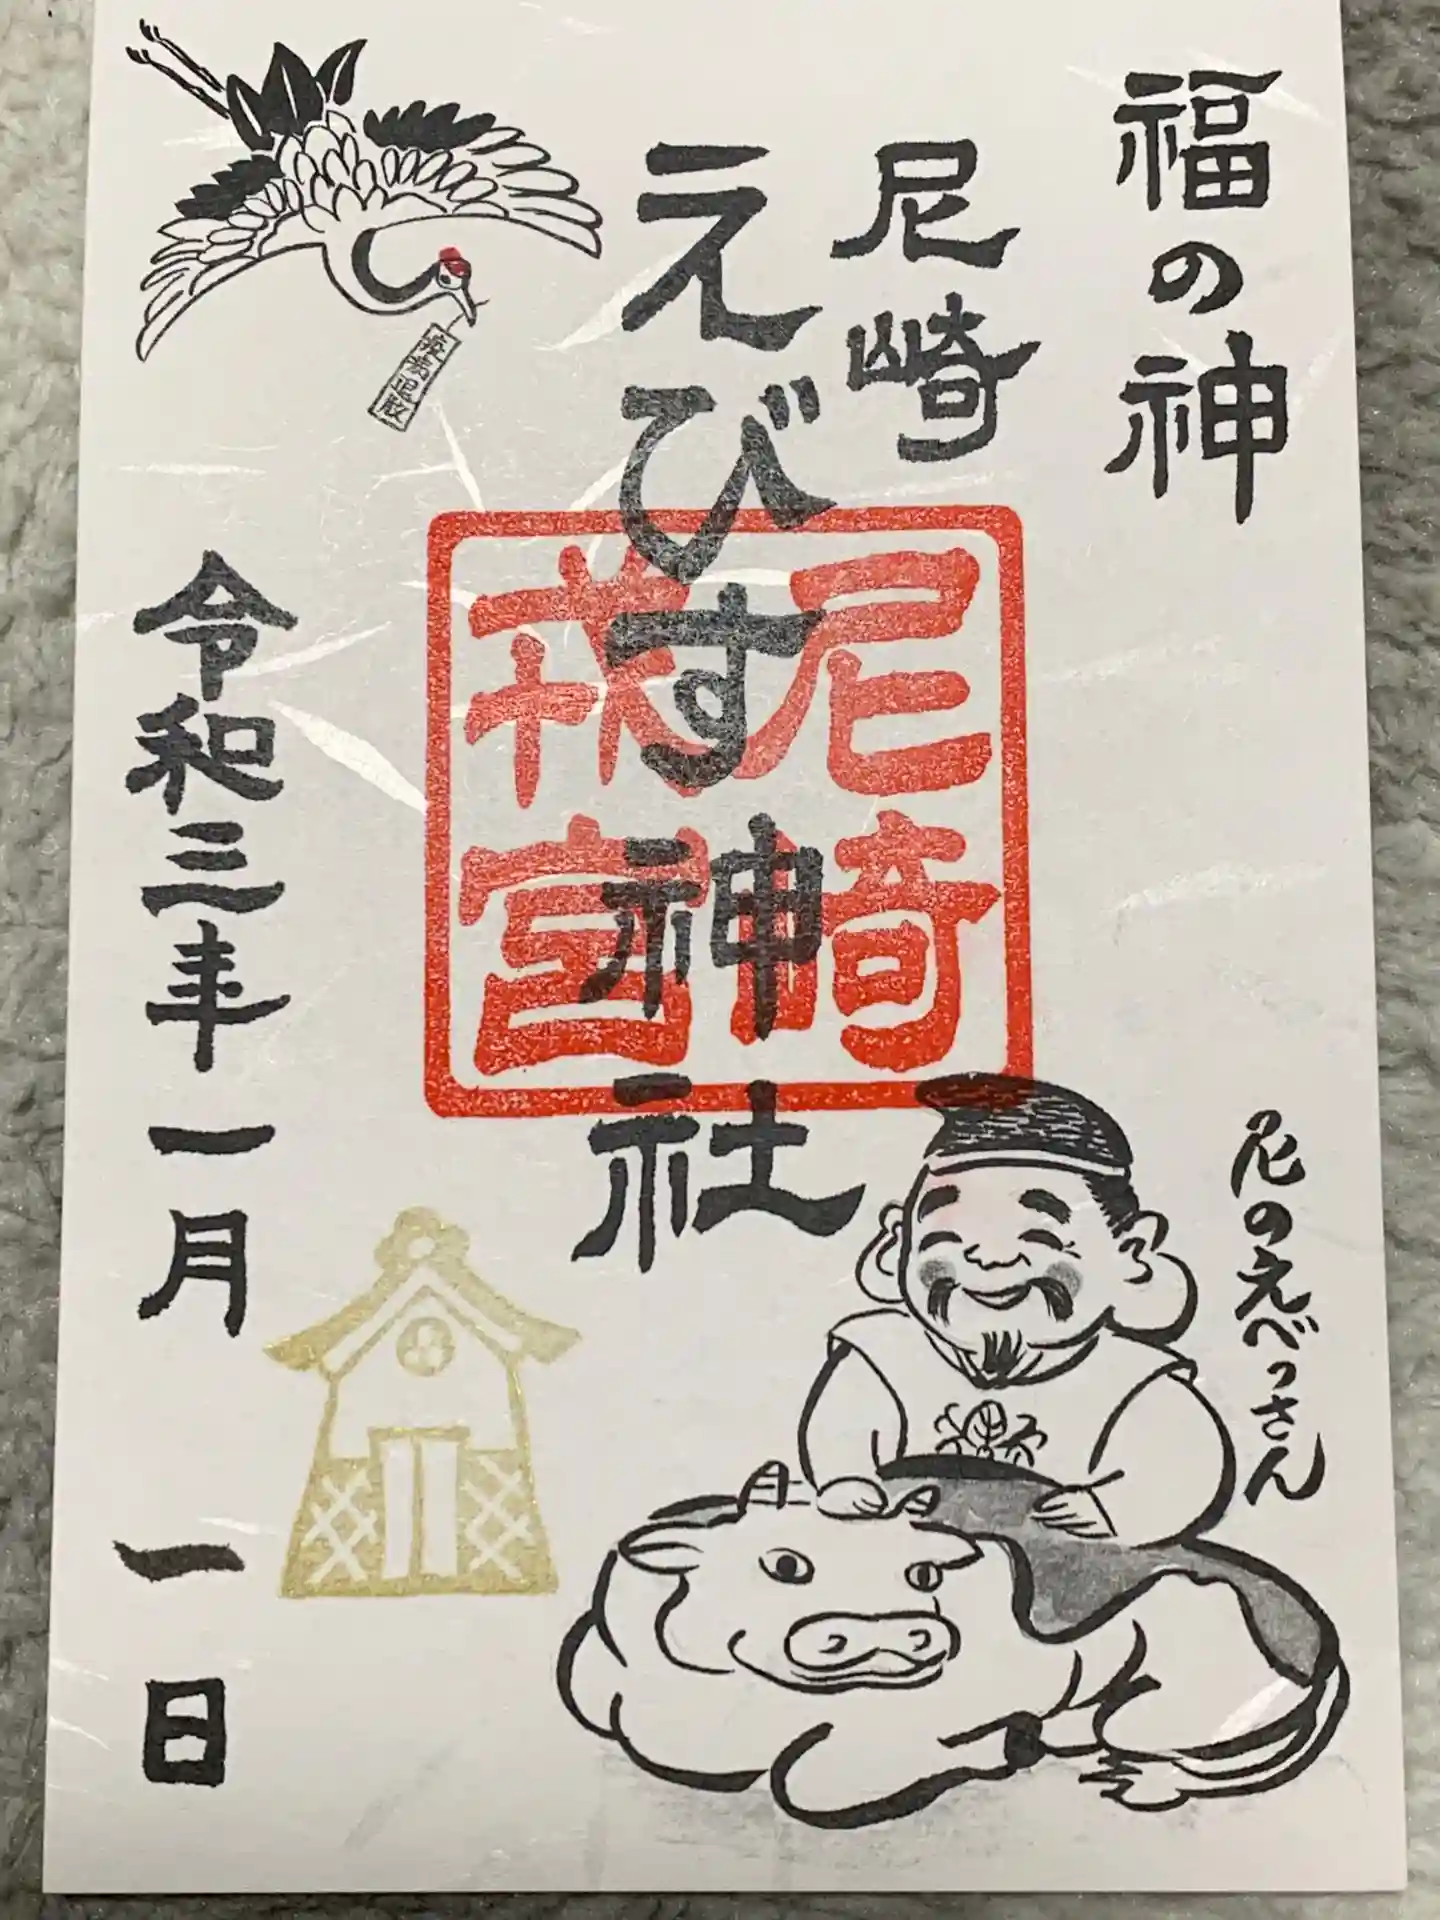 福の神
尼崎
えびす神社
尼崎
戎宮
疫病退散
令和三年一月一日
尼のえべっさん